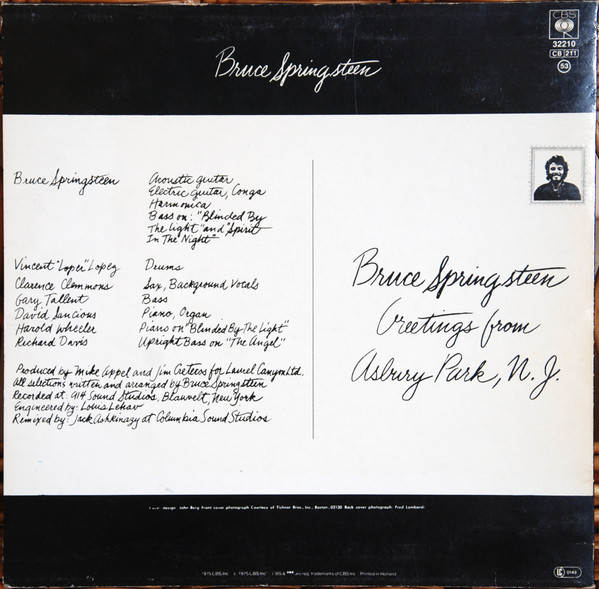 CBS
32210
CB 211
53
Bruce Springsteen
Bruce Springsteen Acoustic guitar
Electric guitar, Conga
Harmonica
Bass on: "Blinded By
The Light" and "Spirit
In The Night"
Vincent "Loper" Lopez Drums
Clarence Clemmons Sax, Background Vocals
Gary Tallent Bass
David Sancious Piano, Organ
Harold Wheeler Piano on "Blinded By The Light"
Richard Davis Upright Bass on "The Angel"
Produced by Mike Appel and Jim Cretecos for Laurel Canyon Ltd.
All selections written and arranged by Bruce Springsteen
Recorded at: 914 Sound Studios, Blauvelt, New York
Engineered by: Louis Lehav
Remixed by: Jack Ashkinazy at Columbia Sound Studios
Bruce Springsteen
Greetings from
Asbury Park, N.J.
design: John Berg Front cover photograph Courtesy of Tichnor Bros., Inc., Boston, 02120 Back cover photograph: Fred Lombardi
1975 CBS Inc. 1975 CBS Inc. CBS & are reg. trademarks of CBS Inc. Printed in Holland